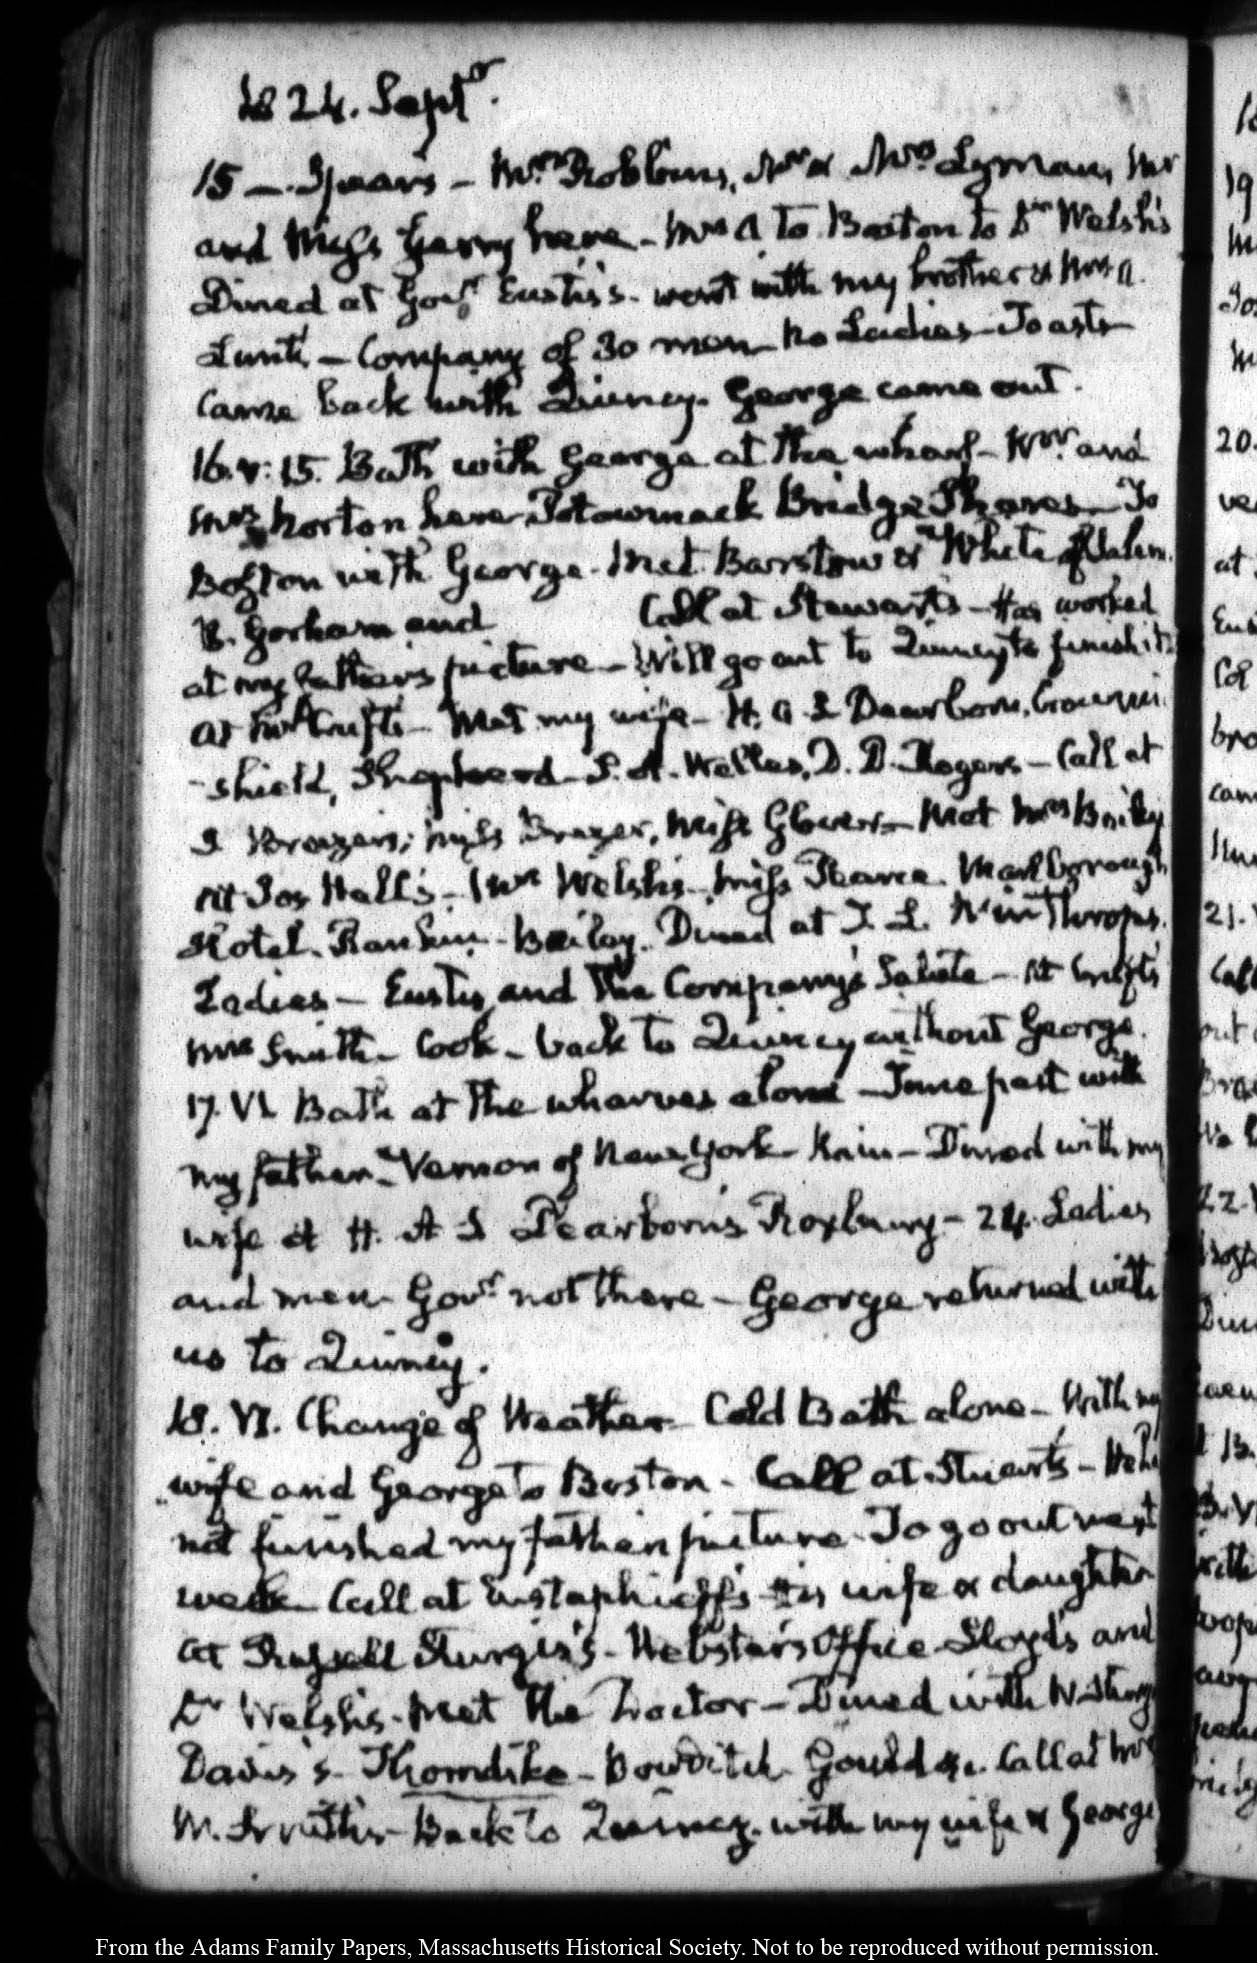 1824. Septr.
15 — Spears — Mrs Robbins, Mr & Mrs Lyman, Mr
and Miss Gerry here — Mrs A to Boston to Dr Welsh's
Dined at Govr Eustis's — went with my brother & Mr
Lunt. — Company of 30 men — No Ladies — Toasts
Came back with Quincy. George came out.
16. V: 15. Bath with George at the wharf — Mr. and
Mrs Norton here — Potowmack Bridge Shares — To
Boston with George — Met Barstow & White of Salem.
B. Gorham and Call at Stewart's — Has worked
at my father's picture — Will go out to Quincy to finish it.
At Mr Cruft's — Met my wife — H. A. S Dearborn, Crownin
-shield, Shepherd — S. A. Welles, D. D. Rogers — Call at
S Brazer's; Miss Brazer, Miss Glover — Met Mrs Bailey
At Jos Hall's — Dr Welsh's — Miss Pearce. Marlborough
Hotel. Rankin — Bailey. Dined at T. L. Winthrop's.
Ladies — Eustis, and the Company's Salute — At Cruft's
Mrs Smith — Cook — back to Quincy without George.
17. VI. Bath at the wharves alone — Time past with
my father — Vernon of New York — Rain — Dined with my
wife at H. A S Dearborn's Roxbury — 24. Ladies
and men — Govr not there — George returned with
us to Quincy.
18. VI. Change of Weather — Cold Bath alone — With my
wife and George to Boston — Call at Stuart's — He has
not finished my father's picture. To go out next
week — Call at Eustaphieff's — His wife & daughter
At Russell Sturgis's — Webster's Office — Lloyd's and
Dr Welsh's — Met the Doctor — Dined with
Davis's — Thorndike — Bowditch — Gould &c. Call at Mrs
M. Smith's — Back to Quincy with my wife & George
19
20.
21.
22.
From the Adams Family Papers, Massachusetts Historical Society. Not to be reproduced without permission.